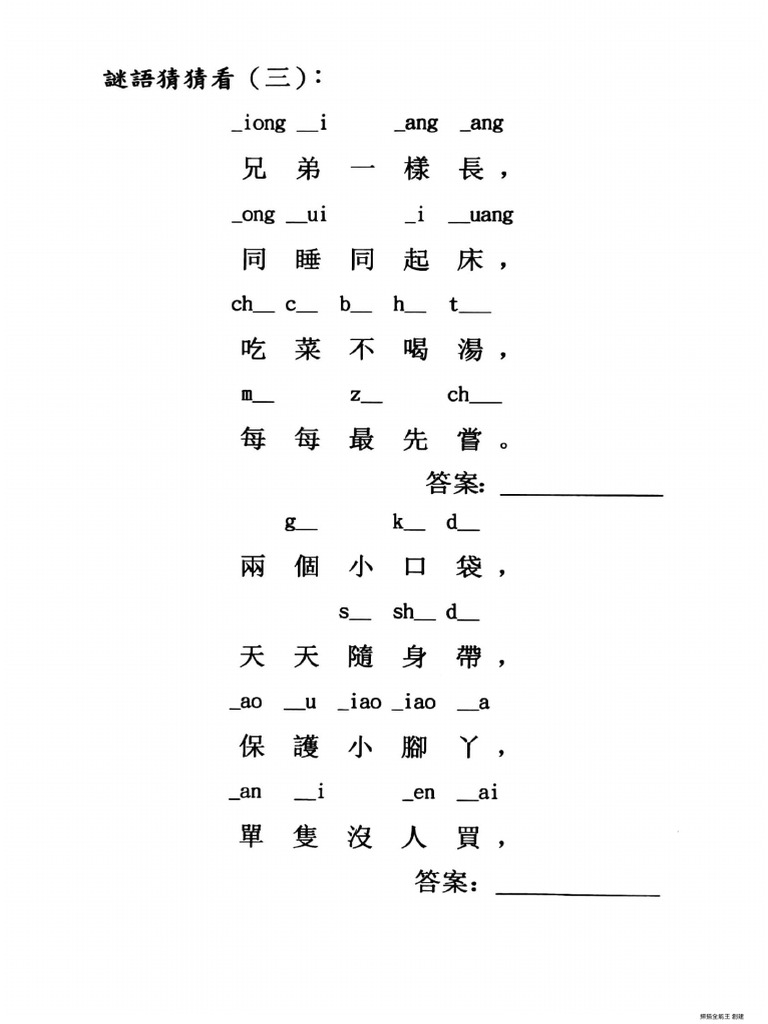 謎語猜猜看（三）：
_iong __i _ang _ang
兄弟一樣長，
_ong __ui _i __uang
同睡同起床，
ch__ c__ b__ h__ t___
吃菜不喝湯，
m__ z__ ch___
每每最先嘗。
答案：____________
g__ k__ d__
兩個小口袋，
s__ sh__ d__
天天隨身帶，
_ao __u _iao _iao __a
保護小腳丫，
_an __i _en __ai
單隻沒人買，
答案：____________
掃描全能王 創建